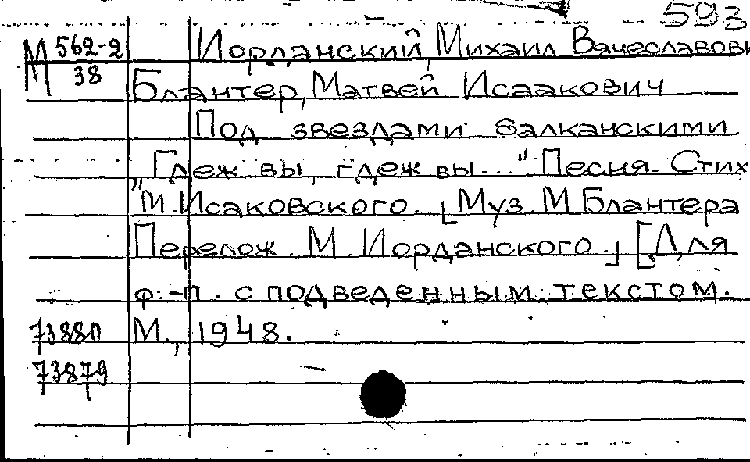 593
М 562-2 Иорданский, Михаил Вячеславови
М 38 Блантер, Матвей Исаакович
Под звездами балканскими
„Где ж вы, где ж вы..." Песня. Стих
М. Исаковского. [Муз. М. Блантера
Перелож. М. Иорданского.] [Для
ф.-п. с подведенным текстом.
73880 М., 1948.
73879